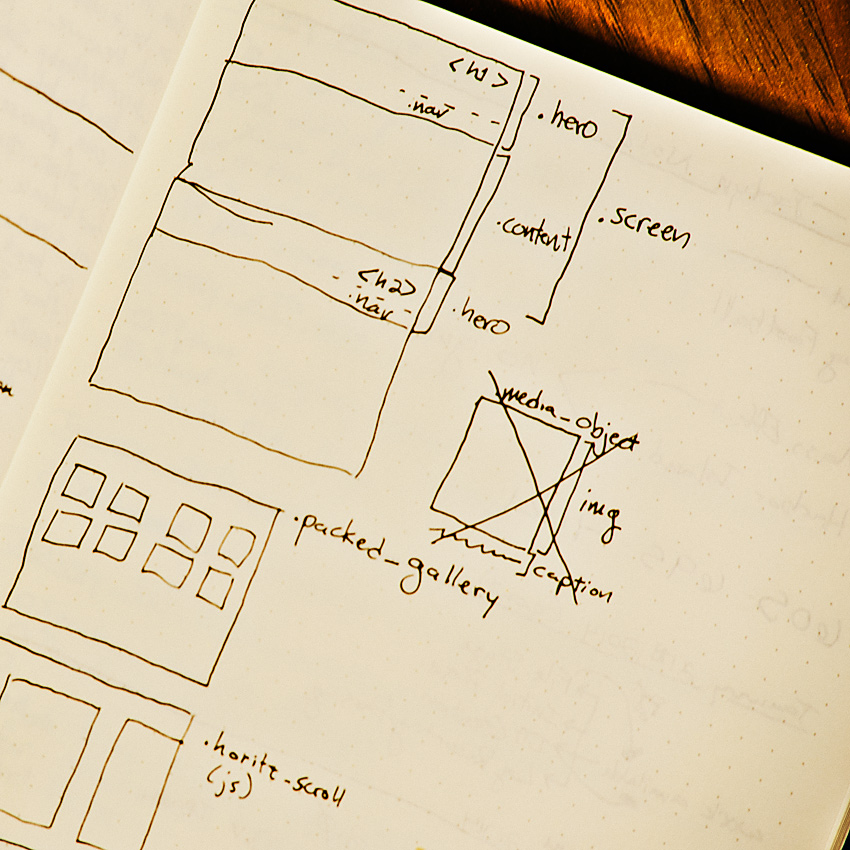 <h1>
.nav
.hero
.content
.screen
<h2>
.nav
.hero
.media_object
img
caption
.packed_gallery
.horitz_scroll
(js)